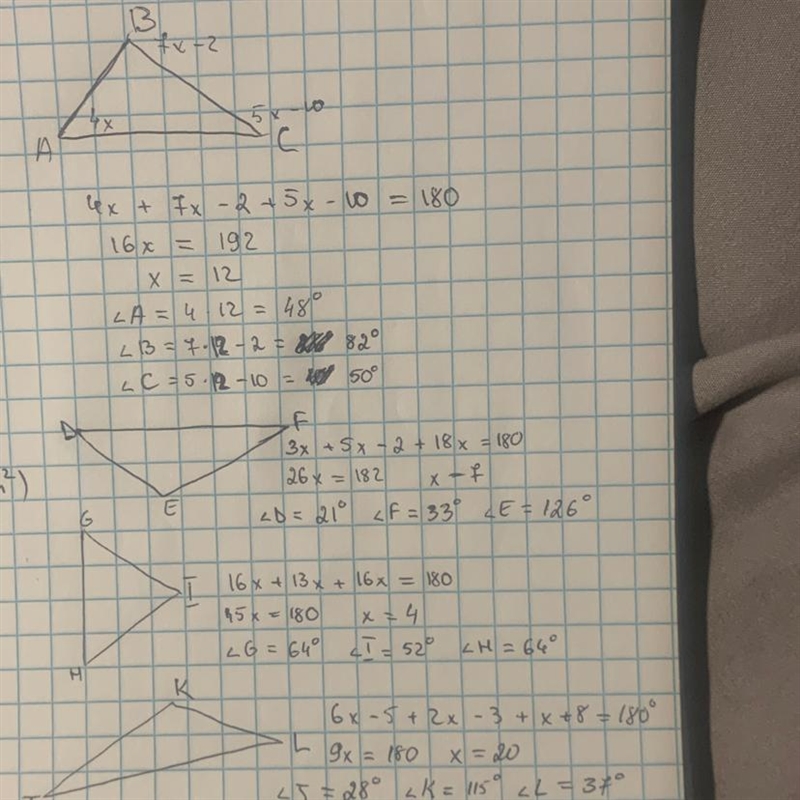 B
7x-2
4x
5x-10
A
C
4x + 7x - 2 + 5x - 10 = 180
16x = 192
x = 12
∠A = 4 12 = 48°
∠B = 7·12 - 2 = 82°
∠C = 5·12 - 10 = 50°
D
F
E
3x + 5x - 2 + 18x = 180
26x = 182 x - 7
∠D = 21° ∠F = 33° ∠E = 126°
²)
G
I
H
16x + 13x + 16x = 180
45x = 180 x = 4
∠G = 64° ∠I = 52° ∠H = 64°
K
L
6x - 5 + 2x - 3 + x + 8 = 180°
9x = 180 x = 20
∠J = 28° ∠K = 115° ∠L = 37°